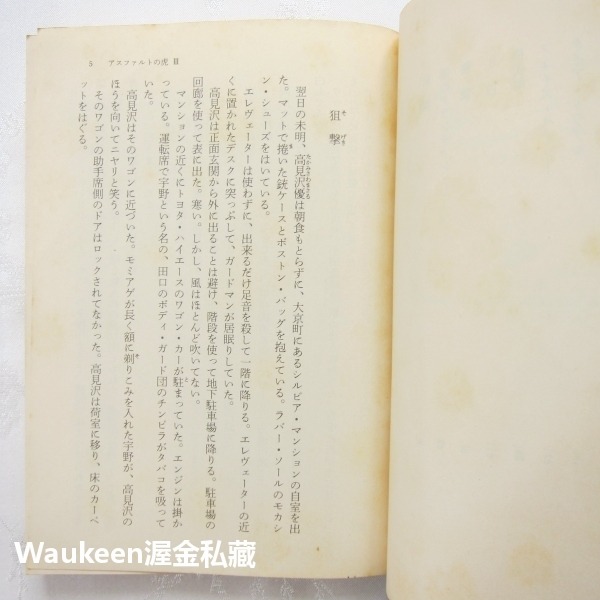 5 アスファルトの虎 Ⅲ
狙撃
そげき
翌日の未明、高見沢優は朝食もとらずに、大京町にあるシルビア・マンションの自室を出
たかみざわまさる
た。マットで捲いた銃ケースとボストン・バッグを抱えている。ラバー・ソールのモカシ
ま
ン・シューズをはいている。
エレヴェーターは使わずに、出来るだけ足音を殺して一階に降りる。エレヴェーターの近
くに置かれたデスクに突っぷして、ガードマンが居眠りしていた。
高見沢は正面玄関から外に出ることは避け、階段を使って地下駐車場に降りる。駐車場の
回廊を使って表に出た。寒い。しかし、風はほとんど吹いてない。
マンションの近くにトヨタ・ハイエースのワゴン・カーが駐まっていた。エンジンは掛か
と
っている。運転席で宇野という名の、田口のボディ・ガード団のチンピラがタバコを吸って
いた。
高見沢はそのワゴンに近づいた。モミアゲが長く額に剃りこみを入れた宇野が、高見沢の
そ
ほうを向いてニヤリと笑う。
そのワゴンの助手席側のドアはロックされてなかった。高見沢は荷室に移り、床のカーペ
ットをはぐる。
Waukeen渥金私藏